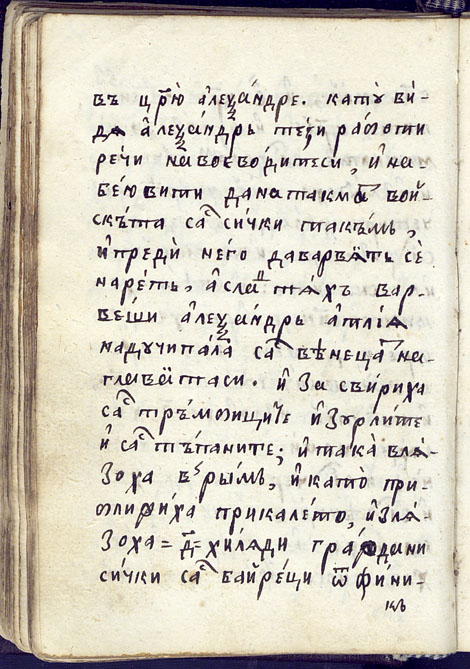 въ цр҃ю алеѯандре. като ви-
дѧ алеѯандръ теѕи работи
речи навоеводитеси, и на-
беювити даматакмѧт вой
скѫта сас сички такъмъ,
ипреди него даварвѧтъ се
наретъ, аслат тѧхъ вар-
веши алеѯандръ
надучипала сас венеца на
главатаси. и За свириха
сас тръмпищите иЗурлите
и сас тъпаните; итака влѧ-
Зоха врымъ, икато при-
ближиха прикалето, иЗлѧ-
Зоха = д҃ = хилѧди граждани
сички сас байреци ѿ фини-
къ